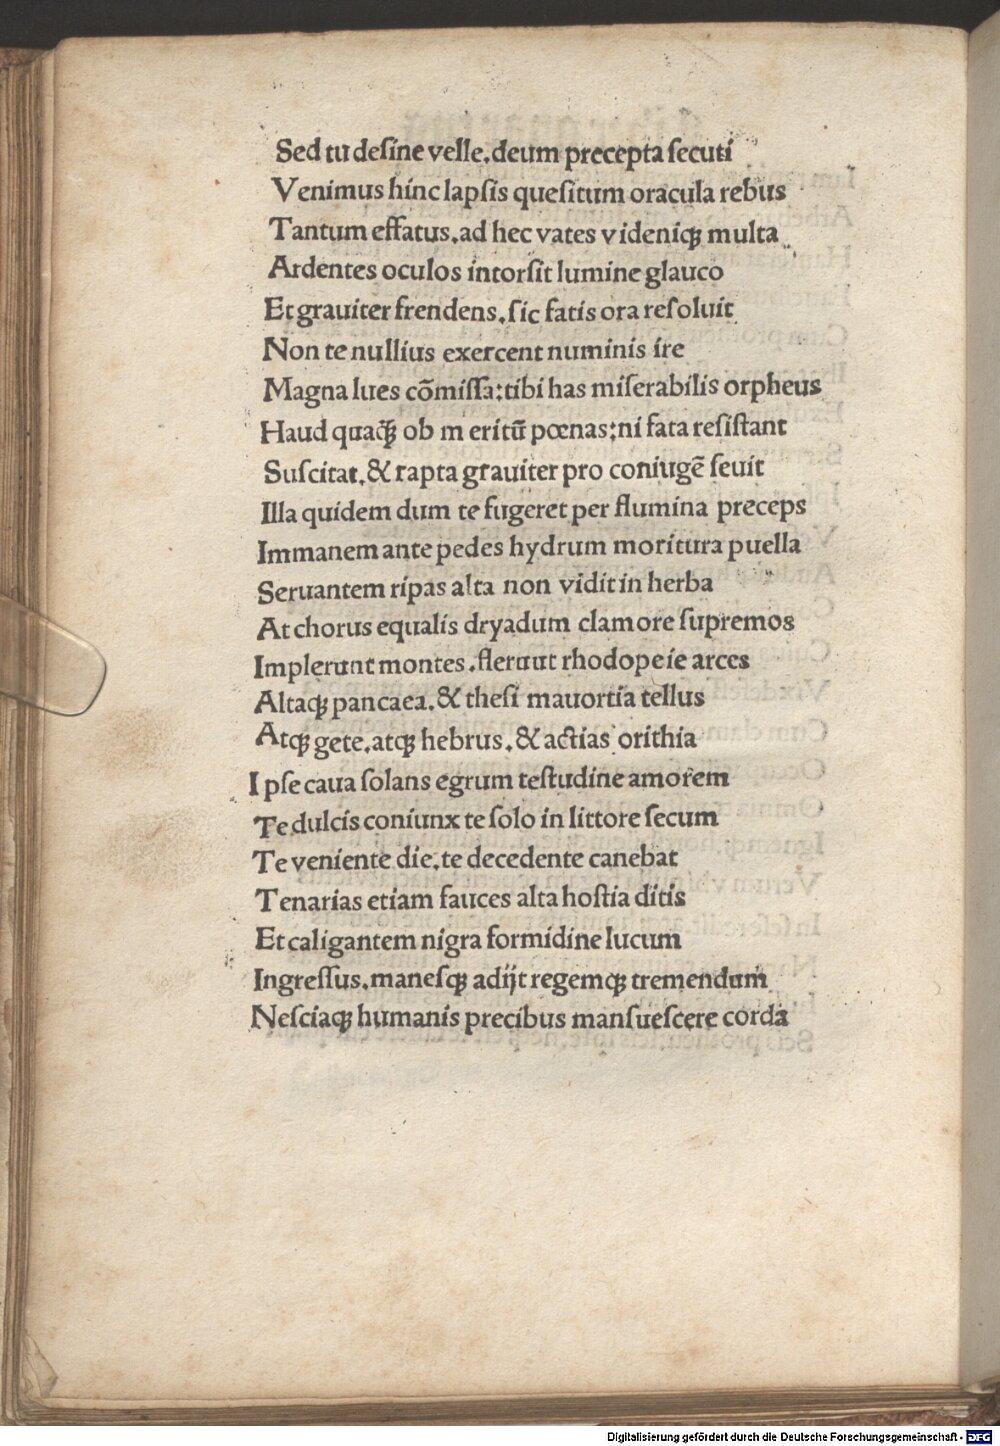 Sed tu desine velle.deum precepta secuti
Venimus hinc lapsis quesitum oracula rebus
Tantum effatus.ad hec vates videniqꝫ multa
Ardentes oculos intorsit lumine glauco
Et grauiter frendens.sic fatis ora resoluit
Non te nullius exercent numinis ire
Magna lues cōmissa:tibi has miserabilis orpheus
Haud quaqꝫ ob meritū pœnas:ni fata resistant
Suscitat.& rapta grauiter pro coniugē seuit
Illa quidem dum te fugeret per flumina preceps
Immanem ante pedes hydrum moritura puella
Seruantem ripas alta non vidit in herba
At chorus equalis dryadum clamore supremos
Implerunt montes.flerunt rhodopeie arces
Altaqꝫ pancaea.& thesi mauortia tellus
Atqꝫ gete.atqꝫ hebrus.& actias orithia
Ipse caua solans egrum testudine amorem
Te dulcis coniunx te solo in littore secum
Te veniente die.te decedente canebat
Tenarias etiam fauces alta hostia ditis
Et caligantem nigra formidine lucum
Ingressus.manesqꝫ adijt regemqꝫ tremendum
Nesciaqꝫ humanis precibus mansuescere corda
Digitalisierung gefördert durch die Deutsche Forschungsgemeinschaft - DFG